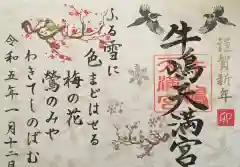 謹賀新年
卯
牛嶋天満宮
ふる雪に
色まどはせる
梅の花
鶯のみや
わきてしのばむ
令和五年一月十二日